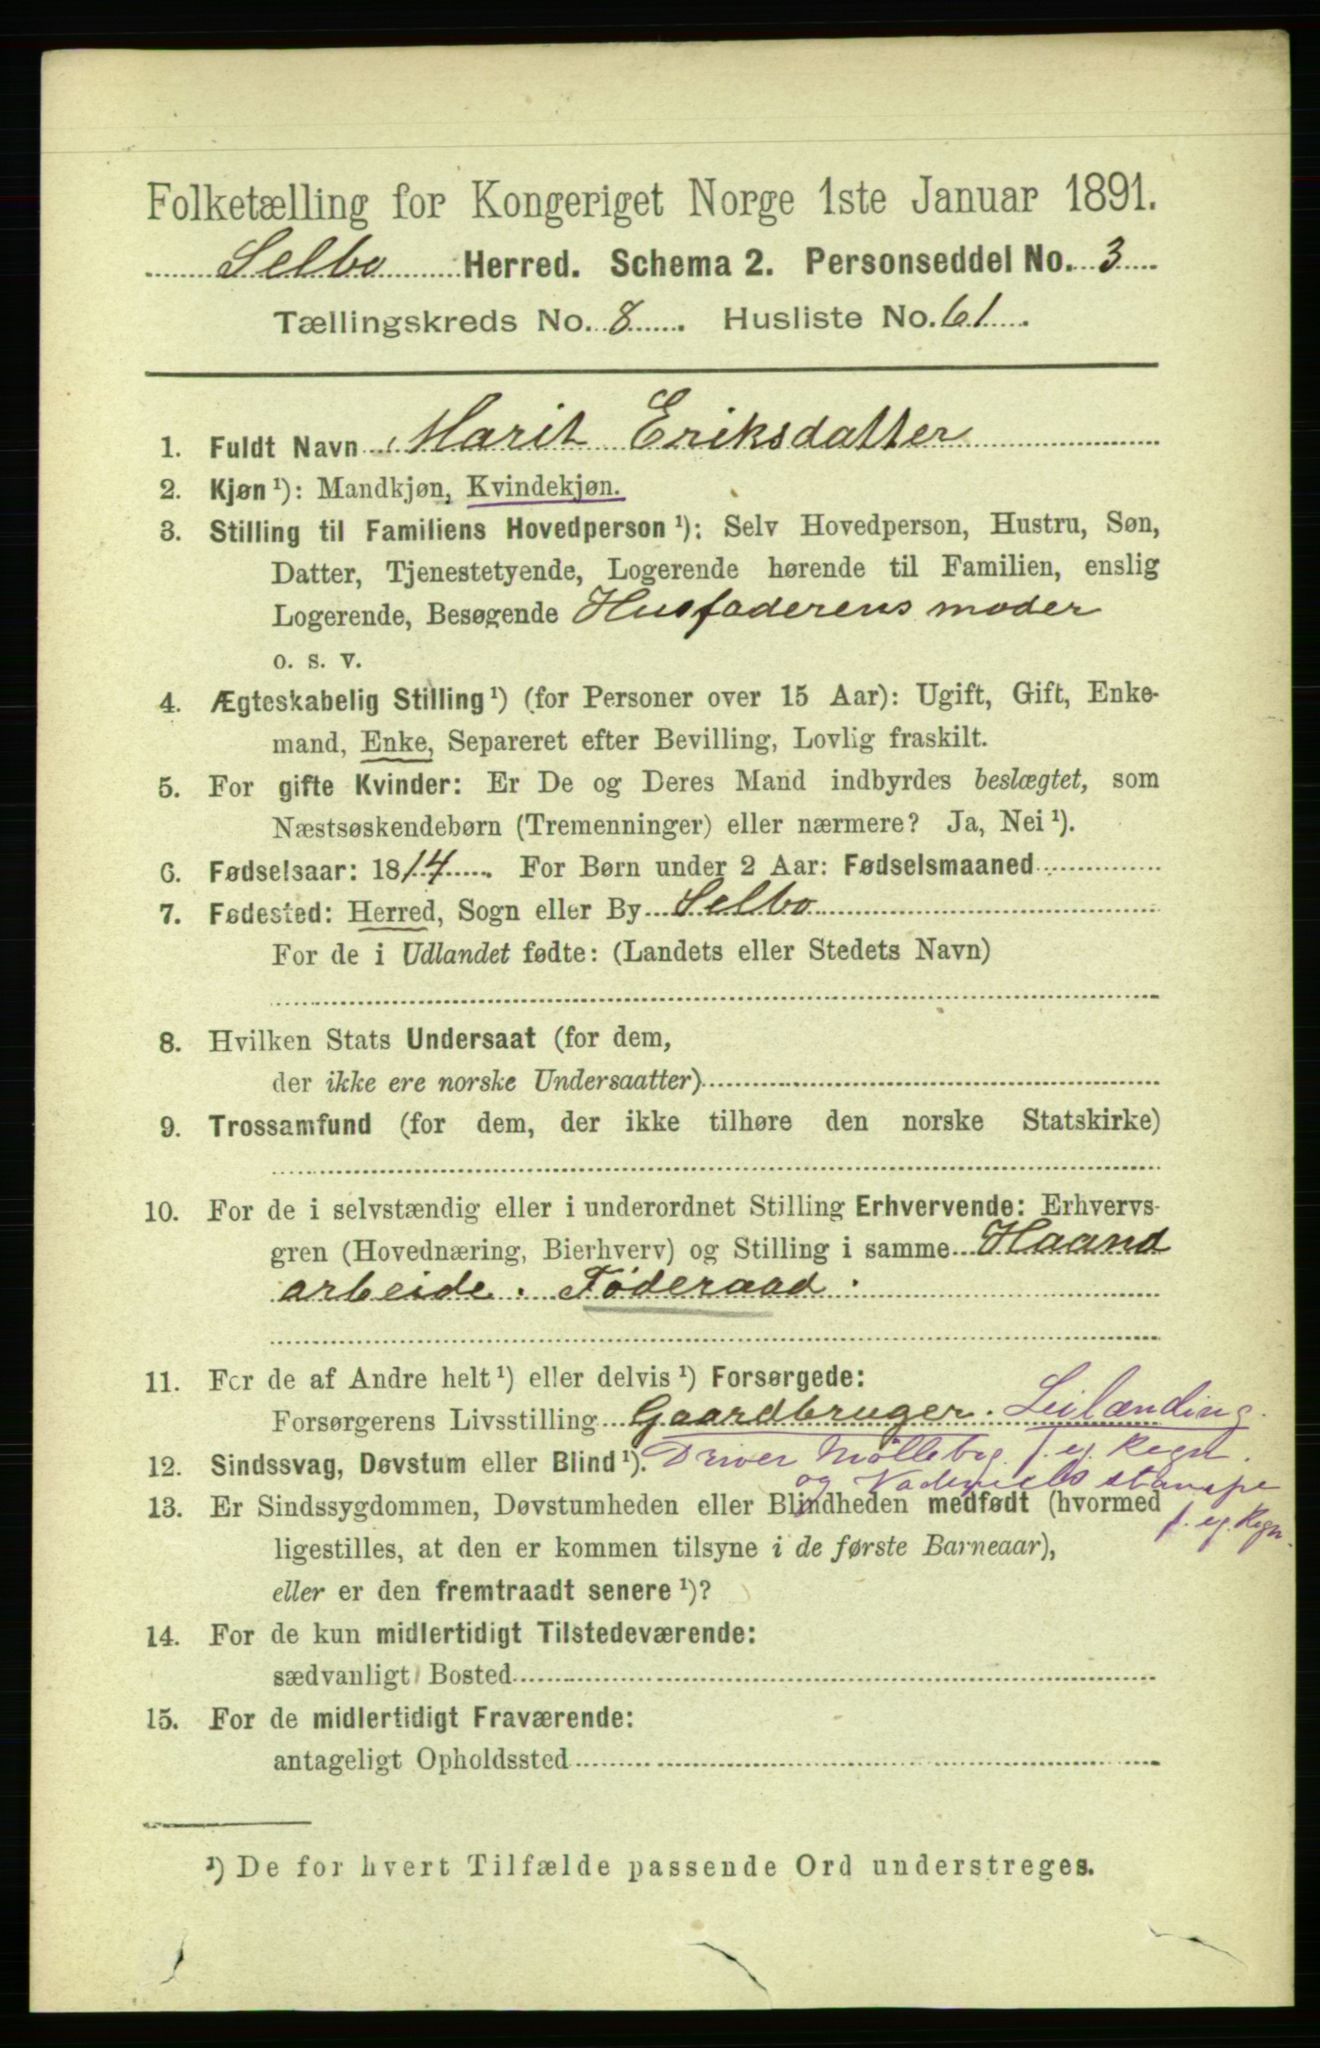 Folketælling for Kongeriget Norge 1ste Januar 1891.
Selbo Herred. Schema 2. Personseddel No. 3
Tællingskreds No. 8. Husliste No. 61.
1. Fuldt Navn Marit Eriksdatter
2. Kjøn ¹): Mandkjøn, Kvindekjøn.
3. Stilling til Familiens Hovedperson ¹): Selv Hovedperson, Hustru, Søn,
Datter, Tjenestetyende, Logerende hørende til Familien, enslig
Logerende, Besøgende Husfaderens moder
o. s. v.
4. Ægteskabelig Stilling ¹) (for Personer over 15 Aar): Ugift, Gift, Enke-
mand, Enke, Separeret efter Bevilling, Lovlig fraskilt.
5. For gifte Kvinder: Er De og Deres Mand indbyrdes beslægtet, som
Næstsøskendebørn (Tremenninger) eller nærmere? Ja, Nei ¹).
6. Fødselsaar: 1814. For Børn under 2 Aar: Fødselsmaaned
7. Fødested: Herred, Sogn eller By Selbo
For de i Udlandet fødte: (Landets eller Stedets Navn)
8. Hvilken Stats Undersaat (for dem,
der ikke ere norske Undersaatter)
9. Trossamfund (for dem, der ikke tilhøre den norske Statskirke)
10. For de i selvstændig eller i underordnet Stilling Erhvervende: Erhvervs-
gren (Hovednæring, Bierhverv) og Stilling i samme Haand
arbeide. Føderaad.
11. For de af Andre helt ¹) eller delvis ¹) Forsørgede:
Forsørgerens Livsstilling Gaardbruger. Leilænding.
12. Sindssvag, Døvstum eller Blind ¹). Driver Møllebrg f. eg. Regn.
og Vadmels stampe
13. Er Sindssygdommen, Døvstumheden eller Blindheden medfødt (hvormed
f. eg. Regn.
ligestilles, at den er kommen tilsyne i de første Barneaar),
eller er den fremtraadt senere ¹)?
14. For de kun midlertidigt Tilstedeværende:
sædvanligt Bosted
15. For de midlertidigt Fraværende:
antageligt Opholdssted
¹) De for hvert Tilfælde passende Ord understreges.